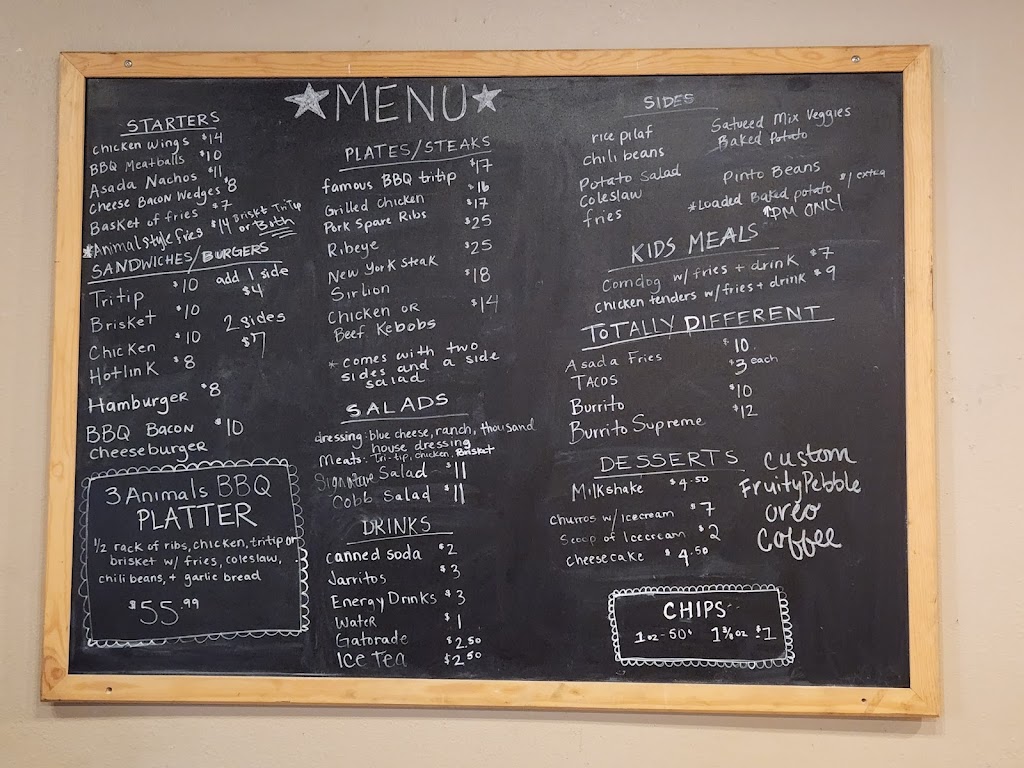 MENU
STARTERS
chicken wings $14
BBQ Meatballs $10
Asada Nachos $11
Cheese Bacon Wedges $8
Basket of fries $7
*Animal style fries $14 Briskt TriTip
or Both
SANDWICHES/BURGERS
Tritip $10 add 1 side
$4
Brisket $10
Chicken $10 2 sides
$7
Hotlink $8
Hamburger $8
BBQ Bacon $10
Cheeseburger
3 Animals BBQ
PLATTER
1/2 rack of ribs, chicken, tritip or
brisket w/ fries, coleslaw,
chili beans, + garlic bread
$55.99
PLATES/STEAKS
famous BBQ tritip $17
Grilled Chicken $16
Pork Spare Ribs $17
Ribeye $25
New York Steak $25
Sirlion $18
Chicken or $14
Beef Kebobs
*comes with two
sides and a side
salad
SALADS
dressing: blue cheese, ranch, thousand
house dressing
Meats: Tri-tip, chicken, Brisket
Signature Salad $11
Cobb Salad $11
DRINKS
canned soda $2
Jarritos $3
Energy Drinks $3
Water $1
Gatorade $2.50
Ice Tea $2.50
SIDES
rice pilaf
chili beans
Potato Salad
Coleslaw
fries
Satueed Mix Veggies
Baked Potato
Pinto Beans
*Loaded Baked potato $1 extra
1PM ONLY
KIDS MEALS
Corndog w/ fries + drink $7
chicken tenders w/ fries + drink $9
TOTALLY DIFFERENT
Asada Fries $10
TACOS $3 each
Burrito $10
Burrito Supreme $12
DESSERTS
Milkshake $4.50
Churros w/ Icecream $7
Scoop of Icecream $2
cheesecake $4.50
Custom
FruityPebble
Oreo
Coffee
CHIPS
1oz-50¢ 1 3/8 oz $1